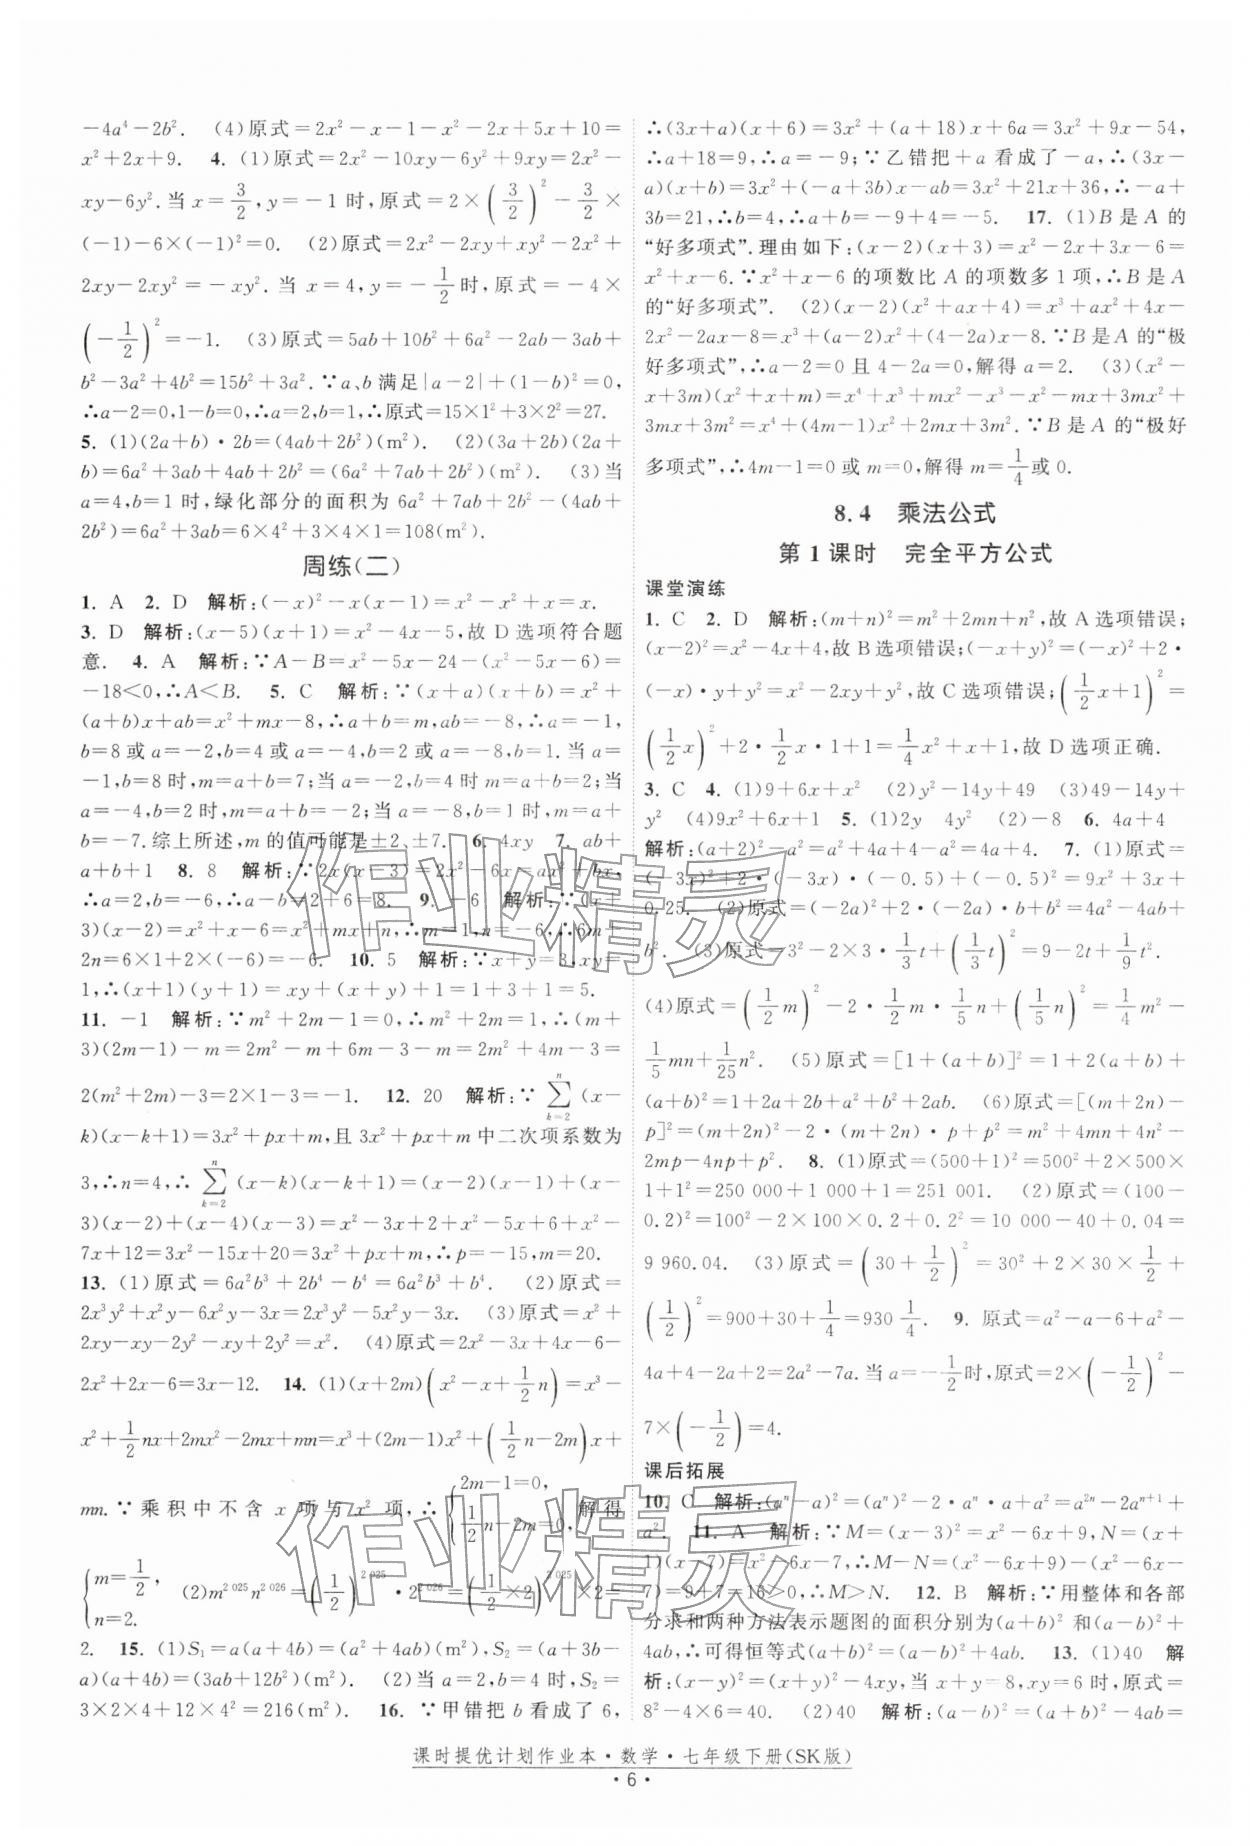 －4a⁴－2b².　(4)原式＝2x²－x－1－x²－2x＋5x＋10＝
x²＋2x＋9.　4. (1)原式＝2x²－10xy－6y²＋9xy＝2x²－
xy－6y². 当 x＝3/2, y＝－1 时, 原式＝2×(3/2)²－3/2×
(－1)－6×(－1)²＝0.　(2)原式＝2x²－2xy＋xy²－2x²＋
2xy－2xy²＝－xy². 当 x＝4, y＝－1/2时, 原式＝－4×
(－1/2)²＝－1.　(3)原式＝5ab＋10b²＋6a²－2ab－3ab＋
b²－3a²＋4b²＝15b²＋3a². ∵a、b 满足|a－2|＋(1－b)²＝0,
∴a－2＝0, 1－b＝0, ∴a＝2, b＝1, ∴原式＝15×1²＋3×2²＝27.
5. (1)(2a＋b)·2b＝(4ab＋2b²)(m²).　(2)(3a＋2b)(2a＋
b)＝6a²＋3ab＋4ab＋2b²＝(6a²＋7ab＋2b²)(m²).　(3)当
a＝4, b＝1 时, 绿化部分的面积为 6a²＋7ab＋2b²－(4ab＋
2b²)＝6a²＋3ab＝6×4²＋3×4×1＝108(m²).
周练(二)
1. A　2. D　解析:(－x)²－x(x－1)＝x²－x²＋x＝x.
3. D　解析:(x－5)(x＋1)＝x²－4x－5, 故 D 选项符合题
意.　4. A　解析:∵A－B＝x²－5x－24－(x²－5x－6)＝
－18<0, ∴A<B.　5. C　解析:∵(x＋a)(x＋b)＝x²＋
(a＋b)x＋ab＝x²＋mx－8, ∴a＋b＝m, ab＝－8, ∴a＝－1,
b＝8 或 a＝－2, b＝4 或 a＝－4, b＝2 或 a＝－8, b＝1. 当 a＝
－1, b＝8 时, m＝a＋b＝7; 当 a＝－2, b＝4 时 m＝a＋b＝2; 当
a＝－4, b＝2 时, m＝a＋b＝－2; 当 a＝－8, b＝1 时, m＝a＋
b＝－7. 综上所述, m 的值可能是±2、±7.　6. 4xy　7. ab＋
a＋b＋1　8. 8　解析:∵2x(x－3)＝2x²－6x＝ax²＋bx,
∴a＝2, b＝－6, ∴a－b＝2＋6＝8.　9. －6　解析:∵(x＋
3)(x－2)＝x²＋x－6＝x²＋mx＋n, ∴m＝1, n＝－6, ∴6m＋
2n＝6×1＋2×(－6)＝－6.　10. 5　解析:∵x＋y＝3, xy＝
1, ∴(x＋1)(y＋1)＝xy＋(x＋y)＋1＝1＋3＋1＝5.
11. －1　解析:∵m²＋2m－1＝0, ∴m²＋2m＝1, ∴(m＋
3)(2m－1)－m＝2m²－m＋6m－3－m＝2m²＋4m－3＝
2(m²＋2m)－3＝2×1－3＝－1.　12. 20　解析:∵∑ₖ₌₂ⁿ(x－
k)(x－k＋1)＝3x²＋px＋m, 且 3x²＋px＋m 中二次项系数为
3, ∴n＝4, ∴∑ₖ₌₂ⁿ(x－k)(x－k＋1)＝(x－2)(x－1)＋(x－
3)(x－2)＋(x－4)(x－3)＝x²－3x＋2＋x²－5x＋6＋x²－
7x＋12＝3x²－15x＋20＝3x²＋px＋m, ∴p＝－15, m＝20.
13. (1)原式＝6a²b³＋2b⁴－b⁴＝6a²b³＋b⁴.　(2)原式＝
2x³y²＋x²y－6x²y－3x＝2x³y²－5x²y－3x.　(3)原式＝x²＋
2xy－xy－2y²－xy＋2y²＝x².　(4)原式＝2x²－3x＋4x－6－
2x²＋2x－6＝3x－12.　14. (1)(x＋2m)(x²－x＋1/2n)＝x³－
x²＋1/2nx＋2mx²－2mx＋mn＝x³＋(2m－1)x²＋(1/2n－2m)x＋
mn. ∵乘积中不含 x 项与 x² 项, ∴{2m－1＝0, 1/2n－2m＝0, 解得
{m＝1/2, n＝2.　(2)m²⁰²⁵n²⁰²⁶＝(1/2)²⁰²⁵·2²⁰²⁶＝(1/2×2)²⁰²⁵×2＝
2.　15. (1)S₁＝a(a＋4b)＝(a²＋4ab)(m²), S₂＝(a＋3b－
a)(a＋4b)＝(3ab＋12b²)(m²).　(2)当 a＝2, b＝4 时, S₂＝
3×2×4＋12×4²＝216(m²).　16. ∵甲错把 b 看成了 6,
∴(3x＋a)(x＋6)＝3x²＋(a＋18)x＋6a＝3x²＋9x－54,
∴a＋18＝9, ∴a＝－9; ∵乙错把＋a 看成了－a, ∴(3x－
a)(x＋b)＝3x²＋(－a＋3b)x－ab＝3x²＋21x＋36, ∴－a＋
3b＝21, ∴b＝4, ∴a＋b＝－9＋4＝－5.　17. (1)B 是 A 的
“好多项式”. 理由如下:(x－2)(x＋3)＝x²－2x＋3x－6＝
x²＋x－6. ∵x²＋x－6 的项数比 A 的项数多 1 项, ∴B 是 A
的“好多项式”.　(2)(x－2)(x²＋ax＋4)＝x³＋ax²＋4x－
2x²－2ax－8＝x³＋(a－2)x²＋(4－2a)x－8. ∵B 是 A 的“极
好多项式”, ∴a－2＝0 且 4－2a＝0, 解得 a＝2.　(3)(x²－
x＋3m)(x²＋x＋m)＝x⁴＋x³＋mx²－x³－x²－mx＋3mx²＋
3mx＋3m²＝x⁴＋(4m－1)x²＋2mx＋3m². ∵B 是 A 的“极好
多项式”, ∴4m－1＝0 或 m＝0, 解得 m＝1/4或 0.
8.4　乘法公式
第 1 课时　完全平方公式
课堂演练
1. C　2. D　解析:(m＋n)²＝m²＋2mn＋n², 故 A 选项错误;
(x－2)²＝x²－4x＋4, 故 B 选项错误; (－x＋y)²＝(－x)²＋2·
(－x)·y＋y²＝x²－2xy＋y², 故 C 选项错误; (1/2x＋1)²＝
(1/2x)²＋2·1/2x·1＋1＝1/4x²＋x＋1, 故 D 选项正确.
3. C　4. (1)9＋6x＋x²　(2)y²－14y＋49　(3)49－14y＋
y²　(4)9x²＋6x＋1　5. (1)2y　4y²　(2)－8　6. 4a＋4
解析:(a＋2)²－a²＝a²＋4a＋4－a²＝4a＋4.　7. (1)原式＝
(－3x)²＋2·(－3x)·(－0.5)＋(－0.5)²＝9x²＋3x＋
0.25.　(2)原式＝(－2a)²＋2·(－2a)·b＋b²＝4a²－4ab＋
b².　(3)原式＝3²－2×3·1/3t＋(1/3t)²＝9－2t＋1/9t².
(4)原式＝(1/2m)²－2·1/2m·1/5n＋(1/5n)²＝1/4m²－
1/5mn＋1/25n².　(5)原式＝[1＋(a＋b)]²＝1＋2(a＋b)＋
(a＋b)²＝1＋2a＋2b＋a²＋b²＋2ab.　(6)原式＝[(m＋2n)－
p]²＝(m＋2n)²－2·(m＋2n)·p＋p²＝m²＋4mn＋4n²－
2mp－4np＋p².　8. (1)原式＝(500＋1)²＝500²＋2×500×
1＋1²＝250 000＋1 000＋1＝251 001.　(2)原式＝(100－
0.2)²＝100²－2×100×0.2＋0.2²＝10 000－40＋0.04＝
9 960.04.　(3)原式＝(30＋1/2)²＝30²＋2×30×1/2＋
(1/2)²＝900＋30＋1/4＝930 1/4.　9. 原式＝a²－a－6＋a²－
4a＋4－2a＋2＝2a²－7a. 当 a＝－1/2时, 原式＝2×(－1/2)²－
7×(－1/2)＝4.
课后拓展
10. C　解析:(aⁿ－a)²＝(aⁿ)²－2·aⁿ·a＋a²＝a²ⁿ－2aⁿ⁺¹＋
a².　11. A　解析:∵M＝(x－3)²＝x²－6x＋9, N＝(x＋
1)(x－7)＝x²－6x－7, ∴M－N＝(x²－6x＋9)－(x²－6x－
7)＝9＋7＝16>0, ∴M>N.　12. B　解析:∵用整体和各部
分求和两种方法表示题图的面积分别为(a＋b)² 和(a－b)²＋
4ab, ∴可得恒等式(a＋b)²＝(a－b)²＋4ab.　13. (1)40　解
析:(x－y)²＝(x＋y)²－4xy, 当 x＋y＝8, xy＝6 时, 原式＝
8²－4×6＝40.　(2)40　解析:(a－b)²＝(a＋b)²－4ab＝
课时提优计划作业本·数学·七年级下册(SK版)
·6·
作业精灵
作业精灵